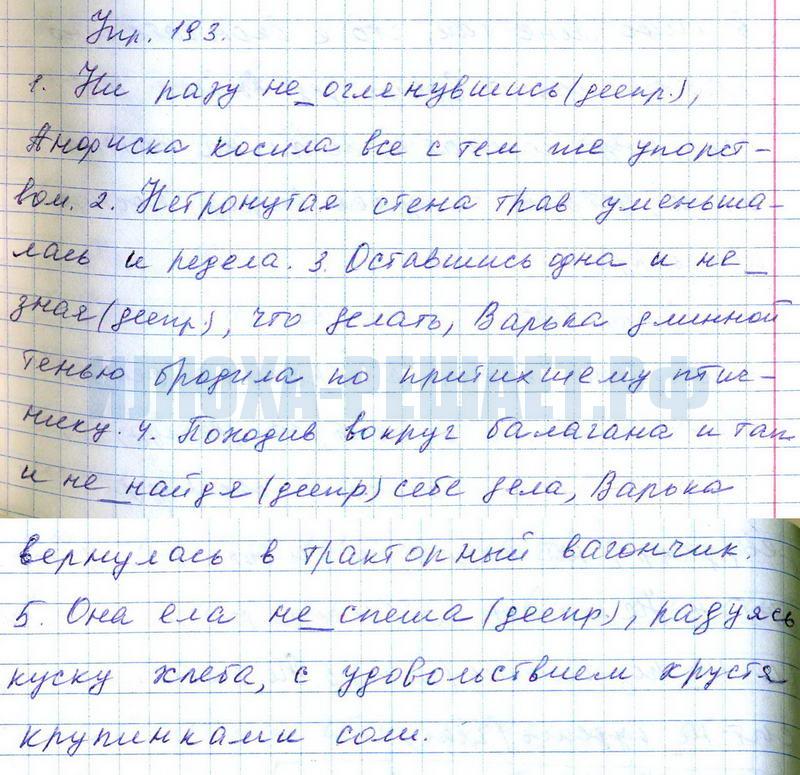 Упр. 193.
1. Ни разу не_оглянувшись (деепр.),
Анфиска косила все с тем же упорст-
вом. 2. Нетронутая стена трав уменьша-
лась и редела. 3. Оставшись одна и не_
зная (деепр.), что делать, Варька длинной
тенью бродила по притихшему птич-
нику. 4. Походив вокруг балагана и так
и не_найдя (деепр) себе дела, Варька
вернулась в тракторный вагончик.
5. Она ела не_спеша (деепр.), радуясь
куску хлеба, с удовольствием хрустя
крупинками соли.
ИЛЮХА-РЕШАЕТ.РФ